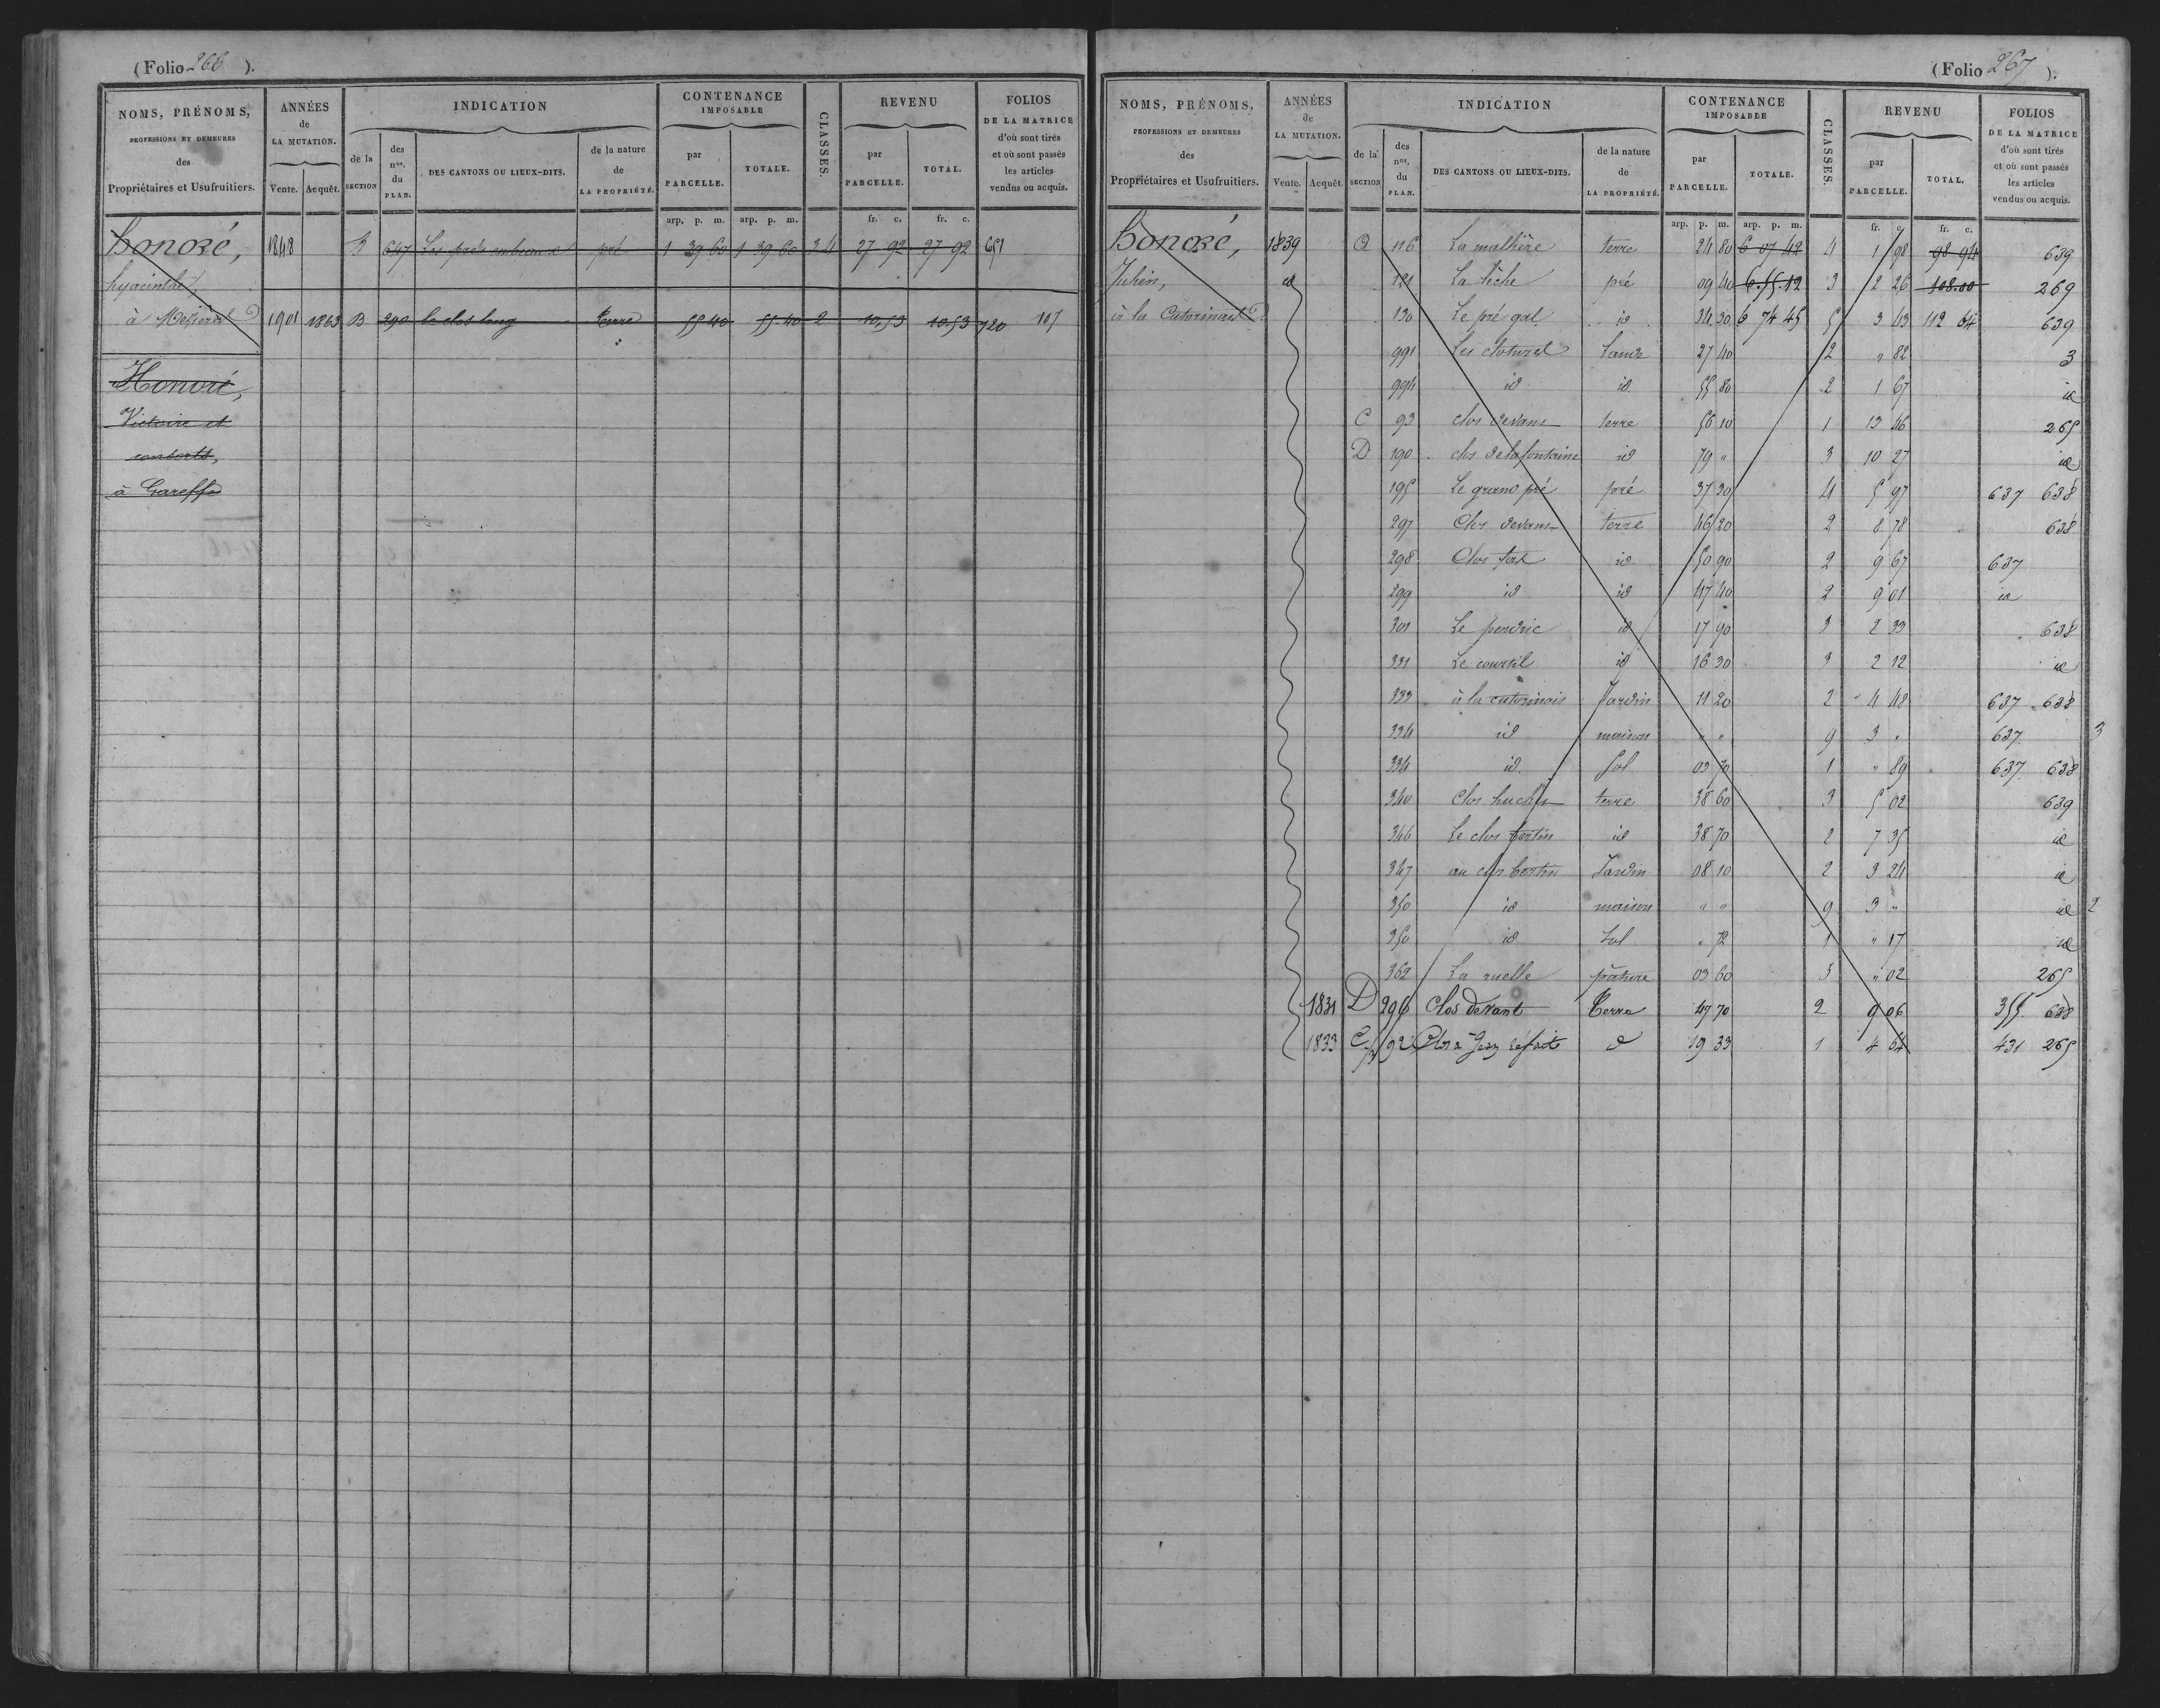 (Folio 266 ).
NOMS, PRÉNOMS, PROFESSIONS ET DEMEURES des Propriétaires et Usufruitiers. ANNÉES de LA MUTATION. Vente. Acquêt. INDICATION de la SECTION des nos. du PLAN. DES CANTONS OU LIEUX-DITS. de la nature de LA PROPRIÉTÉ. CONTENANCE IMPOSABLE par PARCELLE. TOTALE. CLASSES. REVENU par PARCELLE. TOTAL. FOLIOS DE LA MATRICE d'où sont tirés et où sont passés les articles vendus ou acquis.
arp. p. m. arp. p. m. fr. c. fr. c.
honoré, 1848 B 647 Les prés pré 1 39 60 1 39 60 3 4 27 92 27 92 651
hyacinthe,
à 1901 1863 B 290 le clos long terre 55 40 55.40 2 10,53 10,53 720 107
Honoré,
Victoire et
consorts,
à Gareffe
(Folio 267 ).
NOMS, PRÉNOMS, PROFESSIONS ET DEMEURES des Propriétaires et Usufruitiers. ANNÉES de LA MUTATION. Vente. Acquêt. INDICATION de la SECTION des nos. du PLAN. DES CANTONS OU LIEUX-DITS. de la nature de LA PROPRIÉTÉ. CONTENANCE IMPOSABLE par PARCELLE. TOTALE. CLASSES. REVENU par PARCELLE. TOTAL. FOLIOS DE LA MATRICE d'où sont tirés et où sont passés les articles vendus ou acquis.
arp. p. m. arp. p. m. fr. c. fr. c.
honoré, 1839 A 116 La malhère terre 24 80 6 07 42 4 1 98 98 94 639
Julien, id 121 La lèche pré 09 40 6.55.12 3 2 26 108.00 269
à la Catorinais 130 Le pré gal id 34 30 6 74 45 5 3 43 112 64 639
991 Les clotures Lande 27 40 2 " 82 3
994 id id 55 80 2 1 67 id
C 93 clos devant terre 56 10 1 13 46 265
D 190 clos de la fontaine id 79 " 3 10 27 id
195 Le grand pré pré 37 30 4 5 97 637 638
297 Clos devant terre 46 20 2 8 78 638
298 Clos id 50 90 2 9 67 637
299 id id 47 40 2 9 01 id
301 Le pendric id 17 90 3 2 33 638
331 Le courtil id 16 30 3 2 12 id
333 à la catorinais Jardin 11 20 2 4 48 637 638
334 id maison " " 9 3 " 637 3
334 id. Sol 03 70 1 " 89 637 638
340 Clos terre 38 60 3 5 02 639
346 Le clos bertin id 38 70 2 7 35 id
347 au clos bertin Jardin 08 10 2 3 24 id
350 id maison " " 9 3 " id 2
350 id Sol " 72 1 " 17 id
362 La ruelle pature 03 60 3 " 02 265
1831 D 296 Clos devant terre 47 70 2 9 06 355 638
1833 C 92 Clos à Jean d 19 33 1 4 64 431 265